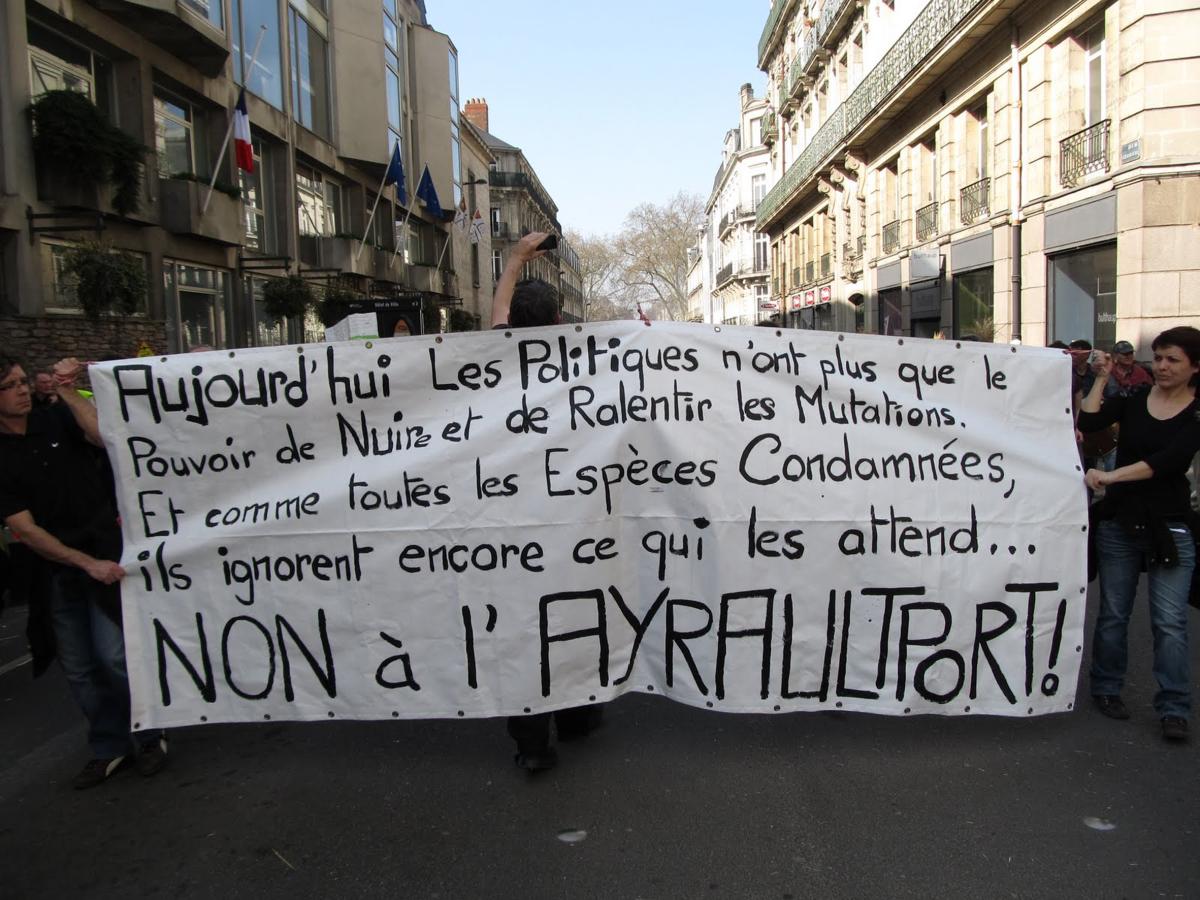 Hôtel de Ville
bulthaup
bulthaup
Aujourd'hui Les Politiques n'ont plus que le
Pouvoir de Nuire et de Ralentir les Mutations.
Et comme toutes les Espèces Condamnées,
ils ignorent encore ce qui les attend...
NON à l'AYRAULTPORT!